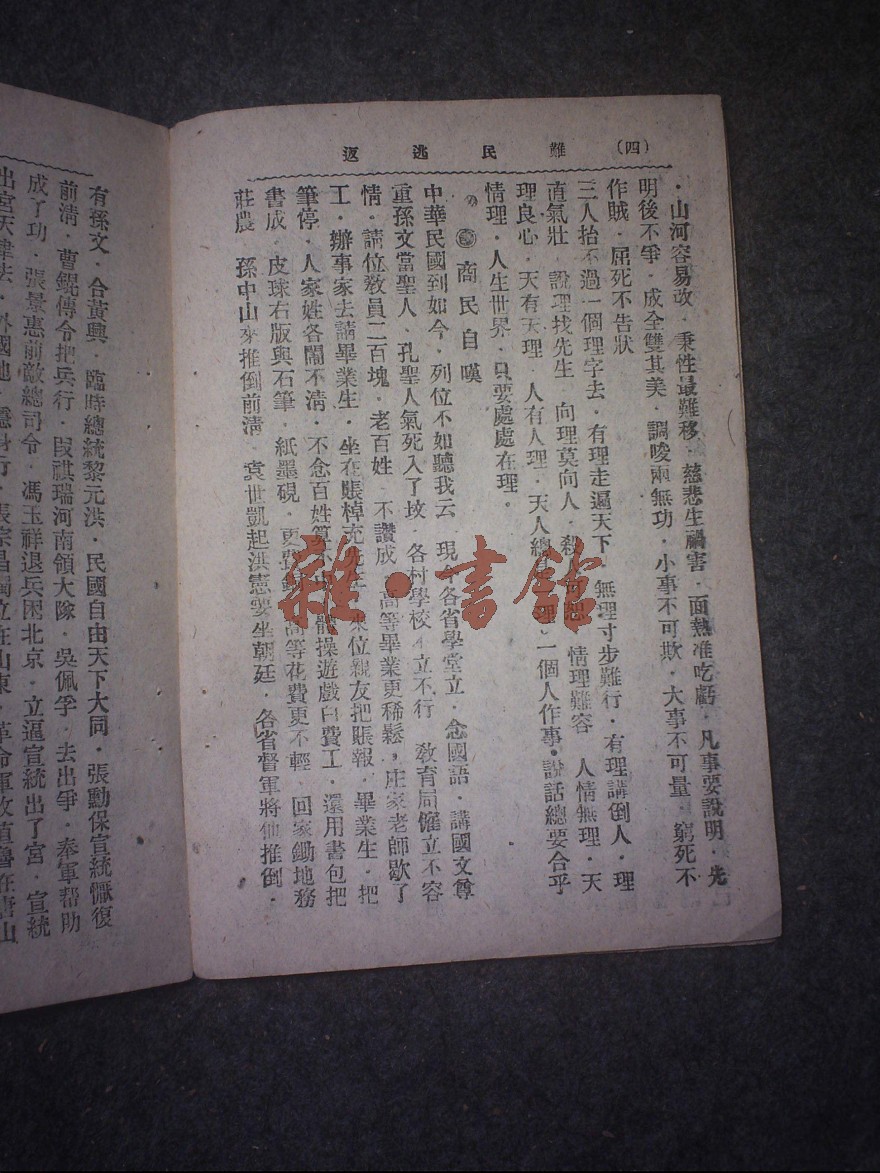 （四） 難民逃返
·山河容易改·秉性最難移·慈悲生禍害·面熱准吃虧·凡事要說明·先
明後不爭·成全雙其美·調唆兩無功·小事不可欺·大事不可量·窮死不
作賊·屈死不告狀
三人抬不過一個理字去·有理走遍天下 無理寸步難行·有理講倒人·理
直氣壯 說理找先生 向理莫向人·殺人可恕 情理難容 人情無理·天
理良心·天有天理·人有人理·天人總 理·一個人作事·說話總要合乎
情理·人生世界·只要處處在理·
商民自嘆
中華民國到如今·列位不如聽我云 現今各省學堂立·念國語·講國文尊
重孫文當聖人·孔聖人氣死入了墳 各村學校·立不行 教育局催立不容
情·請位教員二百塊·老百姓 不讚成 高等畢業更稀鬆·庄家老師歇了
工·辦事家去請畢業生·坐在賬棹充先 來位親友把賬報·畢業生·把
筆停·人家姓各鬧不清·不念百姓算 體操遊戲白費工·還用書包把
書成·皮球右版與石筆·紙墨硯·更費 高等花費更不輕 回家鋤地務
莊農 孫中山來推倒前清 袁世凱起洪憲要坐朝廷·各省督軍將他推倒·
有孫文·合黃興·臨時總統黎元洪·民國自由天下大同·張勳保宣統懨復
前清·曹錕傳令把兵行·段祺瑞河南領大隊·吳佩孚·去出爭·奉軍帮助
成了功·張景惠前敵總司令·馮玉祥退兵困北京·立逼宣統出了宮·宣統
出宮天津去·外國地· 身行·張宗昌獨立在山東·革命軍攻直魯在唐山
雜·書館